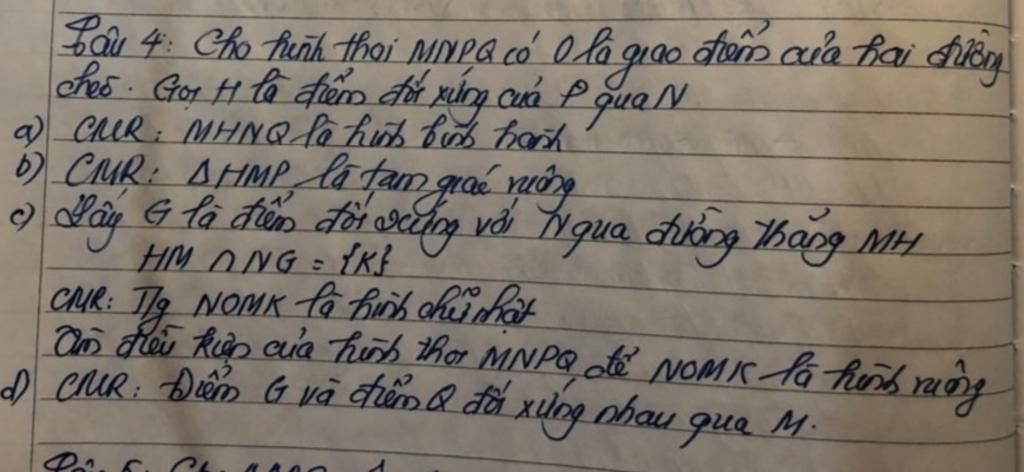 Câu 4: Cho hình thoi MNPQ có O là giao điểm của hai đường
chéo. Gọi H là điểm đối xứng của P qua N
a) CMR: MHNQ là hình bình hành
b) CMR: ΔHMP là tam giác vuông
c) Lấy G là điểm đối xứng với N qua đường thẳng MH
HM ∩ NG = {K}
CMR: T/g NOMK là hình chữ nhật
Tìm điều kiện của hình thoi MNPQ để NOMK là hình vuông
d) CMR: Điểm G và điểm Q đối xứng nhau qua M.